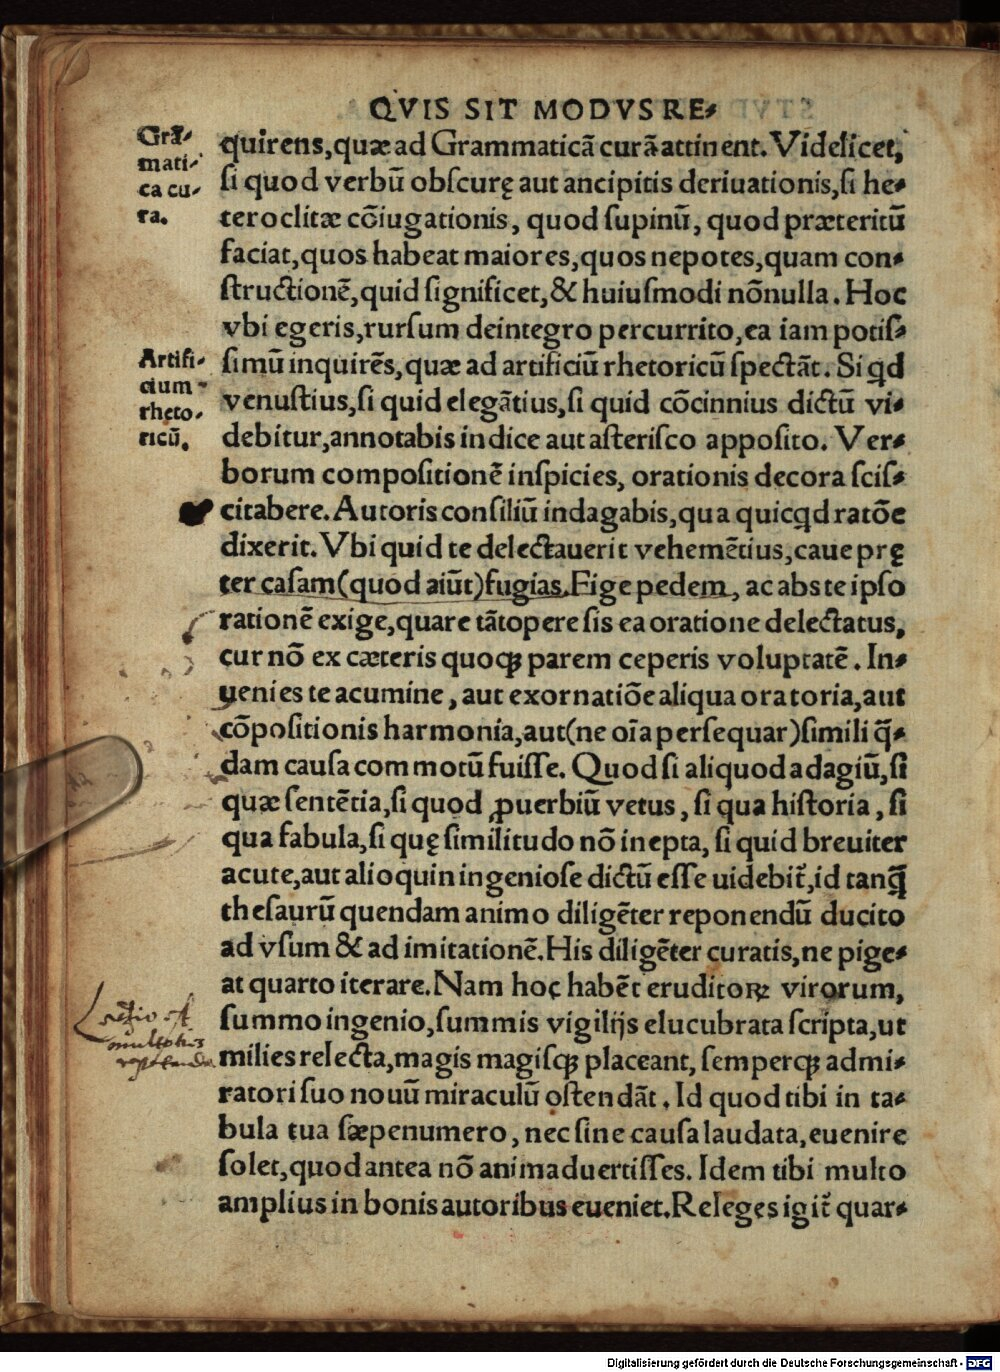 QVIS SIT MODVS RE⸗
Grā⸗
mati⸗
ca cu⸗
ra.
quirens, quæ ad Grammaticā curā attinent. Videlicet,
ſi quod verbū obſcurę aut ancipitis deriuationis, ſi he⸗
teroclitæ cōiugationis, quod ſupinū, quod præteritū
faciat, quos habeat maiores, quos nepotes, quam con⸗
ſtructionē, quid ſignificet, & huiuſmodi nōnulla. Hoc
vbi egeris, rurſum deintegro percurrito, ea iam potiſ⸗
Artifi⸗
cium
rheto⸗
ricū.
ſimū inquirēs, quæ ad artificiū rhetoricū ſpectāt. Si qd
venuſtius, ſi quid elegātius, ſi quid cōcinnius dictū vi⸗
debitur, annotabis indice aut aſteriſco appoſito. Ver⸗
borum compoſitionē inſpicies, orationis decora ſciſ⸗
citabere. Autoris conſiliū indagabis, qua quicqd ratōe
dixerit. Vbi quid te delectauerit vehemētius, caue prę
ter caſam (quod aiūt) fugias. Fige pedem, ac abs te ipſo
rationē exige, quare tātopere ſis ea oratione delectatus,
cur nō ex cæteris quoqꝫ parem ceperis voluptatē. In⸗
uenies te acumine, aut exornatiōe aliqua oratoria, aut
cōpoſitionis harmonia, aut (ne oīa perſequar) ſimili q̄⸗
dam cauſa commotū fuiſſe. Quod ſi aliquod adagiū, ſi
quæ ſentētia, ſi quod ꝓuerbiū vetus, ſi qua hiſtoria, ſi
qua fabula, ſi quę ſimilitudo nō inepta, ſi quid breuiter
acute, aut alioquin ingenioſe dictū eſſe uidebit̄, id tanq̄
theſaurū quendam animo diligēter reponendū ducito
ad vſum & ad imitationē. His diligēter curatis, ne pige⸗
at quarto iterare. Nam hoc habēt eruditoꝝ virorum,
ſummo ingenio, ſummis vigilijs elucubrata ſcripta, ut
milies relecta, magis magiſqꝫ placeant, ſemperqꝫ admi⸗
ratori ſuo nouū miraculū oſtendāt. Id quod tibi in ta⸗
bula tua ſæpenumero, nec ſine cauſa laudata, euenire
ſolet, quod antea nō animaduertiſſes. Idem tibi multo
amplius in bonis autoribus eueniet. Releges igit̄ quar⸗
Digitalisierung gefördert durch die Deutsche Forschungsgemeinschaft - DFG